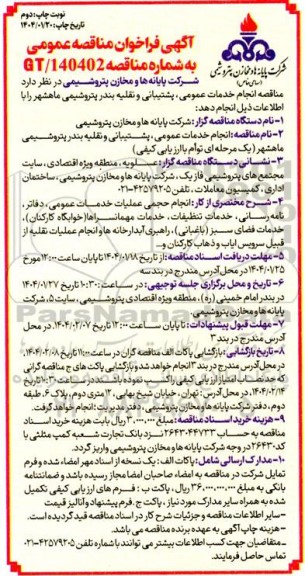 نوبت چاپ: دوم
تاریخ چاپ: ۱۴۰۴/۰۱/۲۰
آگهی فراخوان مناقصه عمومی
به شماره مناقصه GT/140402
شرکت پایانه ها و مخازن پتروشیمی
(سهامی خاص)
شرکت پایانه ها و مخازن پتروشیمی در نظر دارد
مناقصه انجام خدمات عمومی، پشتیبانی و نقلیه بندر پتروشیمی ماهشهر را با
اطلاعات ذیل انجام دهد:
۱- نام دستگاه مناقصه گزار: شرکت پایانه ها و مخازن پتروشیمی
۲- نام مناقصه: انجام خدمات عمومی، پشتیبانی و نقلیه بندر پتروشیمی
ماهشهر (یک مرحله ای توأم با ارزیابی کیفی)
۳- نشانی دستگاه مناقصه گزار: عسلویه، منطقه ویژه اقتصادی، سایت
مجتمع های پتروشیمی فاز یک، شرکت پایانه ها و مخازن پتروشیمی، ساختمان
اداری، کمیسیون معاملات، تلفن ۴۲۵۷۹۲۰۵-۰۲۱
۴- شرح مختصری از کار: انجام حجمی عملیات خدمات عمومی، دفاتر،
نامه رسانی، خدمات تنظیفات، خدمات مهمانسراها (خوابگاه کارکنان)،
خدمات فضای سبز (باغبانی)، راهبری آبدارخانه ها و انجام عملیات نقلیه از
قبیل سرویس ایاب و ذهاب کارکنان و...
۵- مهلت دریافت اسناد مناقصه: از تاریخ ۱۴۰۴/۰۱/۱۸ تا پایان ساعت ۱۲:۰۰ مورخ
۱۴۰۴/۰۱/۲۵ در محل آدرس مندرج در بند سه
۶- تاریخ و محل برگزاری جلسه توجیهی: در ساعت ۱۰:۳۰ تاریخ ۱۴۰۴/۰۱/۲۷
در بندر امام خمینی (ره)، منطقه ویژه اقتصادی پتروشیمی، سایت ۵، شرکت
پایانه ها و مخازن پتروشیمی
۷- مهلت قبول پیشنهادات: تا پایان ساعت ۱۲:۰۰ تاریخ ۱۴۰۴/۰۲/۰۷ در محل
آدرس مندرج در بند ۳
۸- تاریخ بازگشایی: بازگشایی پاکات الف مناقصه گران در ساعت ۱۱:۰۰ تاریخ ۱۴۰۴/۰۲/۰۸
در محل آدرس مندرج در بند ۳ انجام خواهد شد و بازگشایی پاکت های ج مناقصه گرانی
که حد نصاب امتیاز ارزیابی کیفی را کسب نموده باشند در ساعت ۱۰:۳۰ تاریخ
۱۴۰۴/۰۲/۱۴ در محل آدرس: تهران، خیابان شیخ بهایی، ۲۰ متری دوم، پلاک ۶، طبقه
دوم، دفتر شرکت پایانه ها و مخازن پتروشیمی، دفتر بازرسی فنی انجام خواهد گرفت.
۹- هزینه خرید اسناد مناقصه: مبلغ ۳,۰۰۰,۰۰۰ ریال بابت هزینه خرید اسناد
مناقصه به حساب ۲۶۴۳۰۴۴۷۳۳ نزد بانک تجارت شعبه کمپ مثلثی با
کد ۲۶۴۳۰ در وجه شرکت پایانه ها و مخازن پتروشیمی واریز گردد.
۱۰- مدارک ارسالی شامل: پاکات الف: یک نسخه از اسناد مهر امضاء شده و فرم
تمایل شرکت در مناقصه به امضاء صاحبان امضا مجاز رسیده باشد و ضمانتنامه
بانکی به مبلغ ۳۶,۰۰۰,۰۰۰,۰۰۰ ریال، پاکات ب: فرم های ارزیابی کیفی تکمیل
شده به همراه سایر مدارک مورد نیاز، پاکات ج: فرم پیشنهاد و آنالیز قیمت
-سایر اطلاعات مناقصه و جزئیات شرح کار در اسناد مناقصه قید گردیده است.
-هزینه چاپ آگهی به عهده برنده مناقصه می باشد.
-متقاضیان جهت کسب اطلاعات بیشتر می توانند با شماره تلفن ۴۲۵۷۹۲۰۵-۰۲۱
تماس حاصل فرمایند.